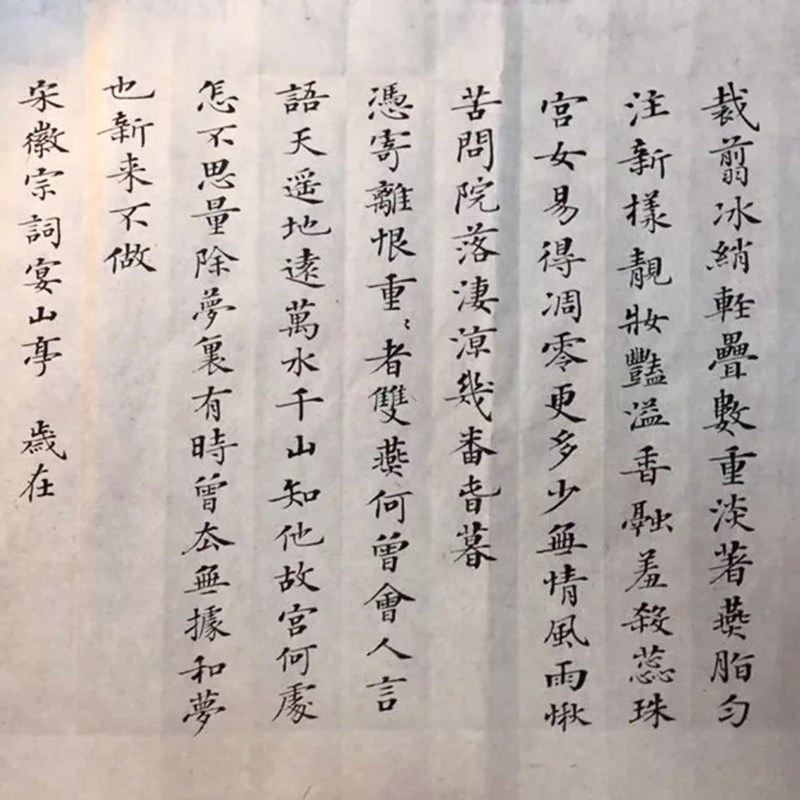 裁翦冰綃輕疊數重淡著燕脂勻
注新樣靚妝豔溢香融羞殺蕊珠
宮女易得凋零更多少無情風雨愀
苦問院落淒涼幾番春暮
憑寄離恨重〻者雙燕何曾會人言
語天遥地遠萬水千山知他故宮何處
怎不思量除夢裏有時曾去無據和夢
也新来不做
宋徽宗詞宴山亭 歲在